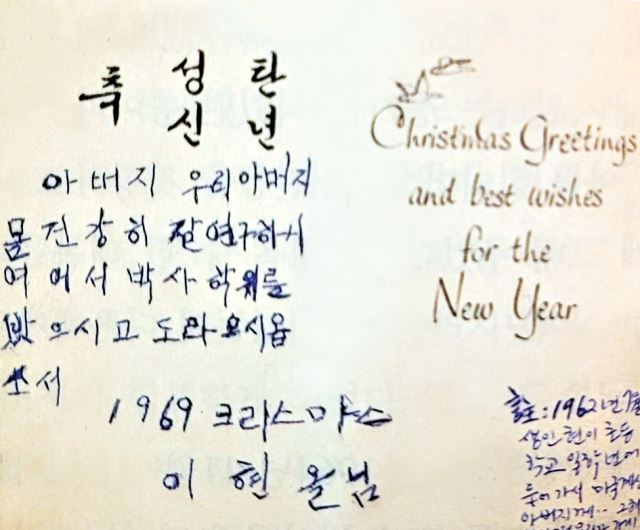 축 성탄
신년
아버지 우리아버지
몸건강히 잘연구하시
여 어서 박사학위를
받으시고 도라오시옵
소서
1969 크리스마스
이현올님
Christmas Greetings
and best wishes
for the
New Year
註: 1962년
생인 현이 초등
학교 일학년에
들어가서 미국계신
아버지께..